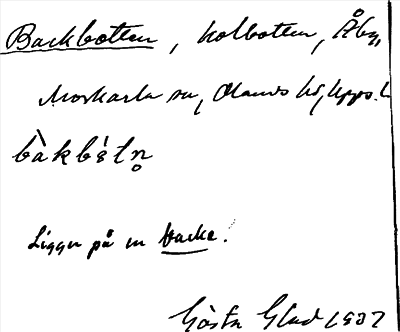 Backbotten, kolbotten, Åby,
Morkarla sn, Olands hd, Upps. l.
bàkbòtn̥
Ligger på en backe.
Gösta Glad 1937